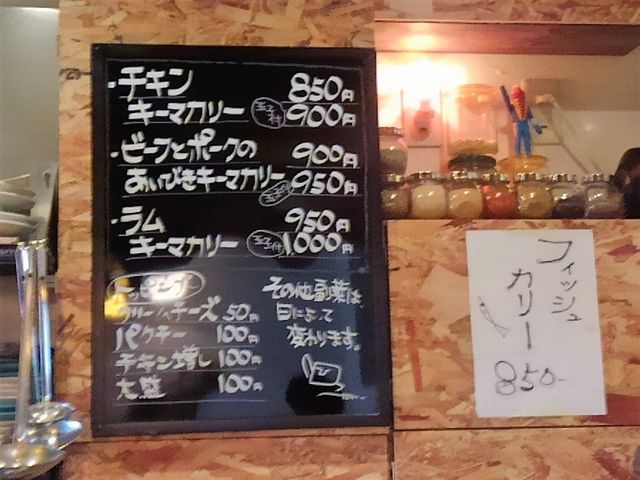 ・チキン 850円
キーマカリー 玉子付 900円
・ビーフとポークの 900円
あいびきキーマカリー 玉子付 950円
・ラム 950円
キーマカリー 玉子付 1,000円
トッピング
クリームチーズ 50円
パクチー 100円
チキン増し 100円
大盛 100円
その他副菜は、
日によって
変わります。
フィッシュ
カリー
850-